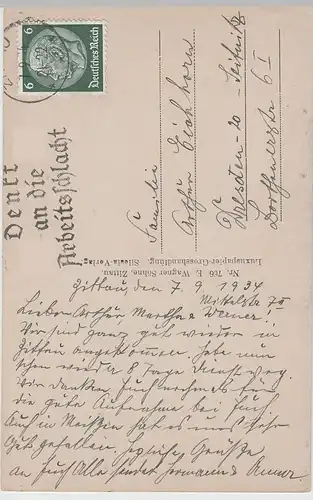 6
6
Deutsches Reich
Denkt
an die
Arbeitsschlacht
Familie
Arthur Eichhorn
Dresden - 20 - Leubnitz
6 I
Nr. 766 E. Wagner Söhne, Zittau.
Luxuspapier-Grosshandlung. Silesia-Verlag
Zittau, den 7. 9. 1934
Mittelstr 7 II
Lieber Arthur Martha & Werner!
Wir sind ganz gut wieder in
Zittau angekommen. habe nun
schon wieder 8 Tage Dienst weg.
Wir danken Euch nochmals für
die gute Aufnahme bei Euch
Auch in Meißen hat es uns sehr
Gut gefallen. Herzliche Grüße
an Euch Alle sendet Hermann &